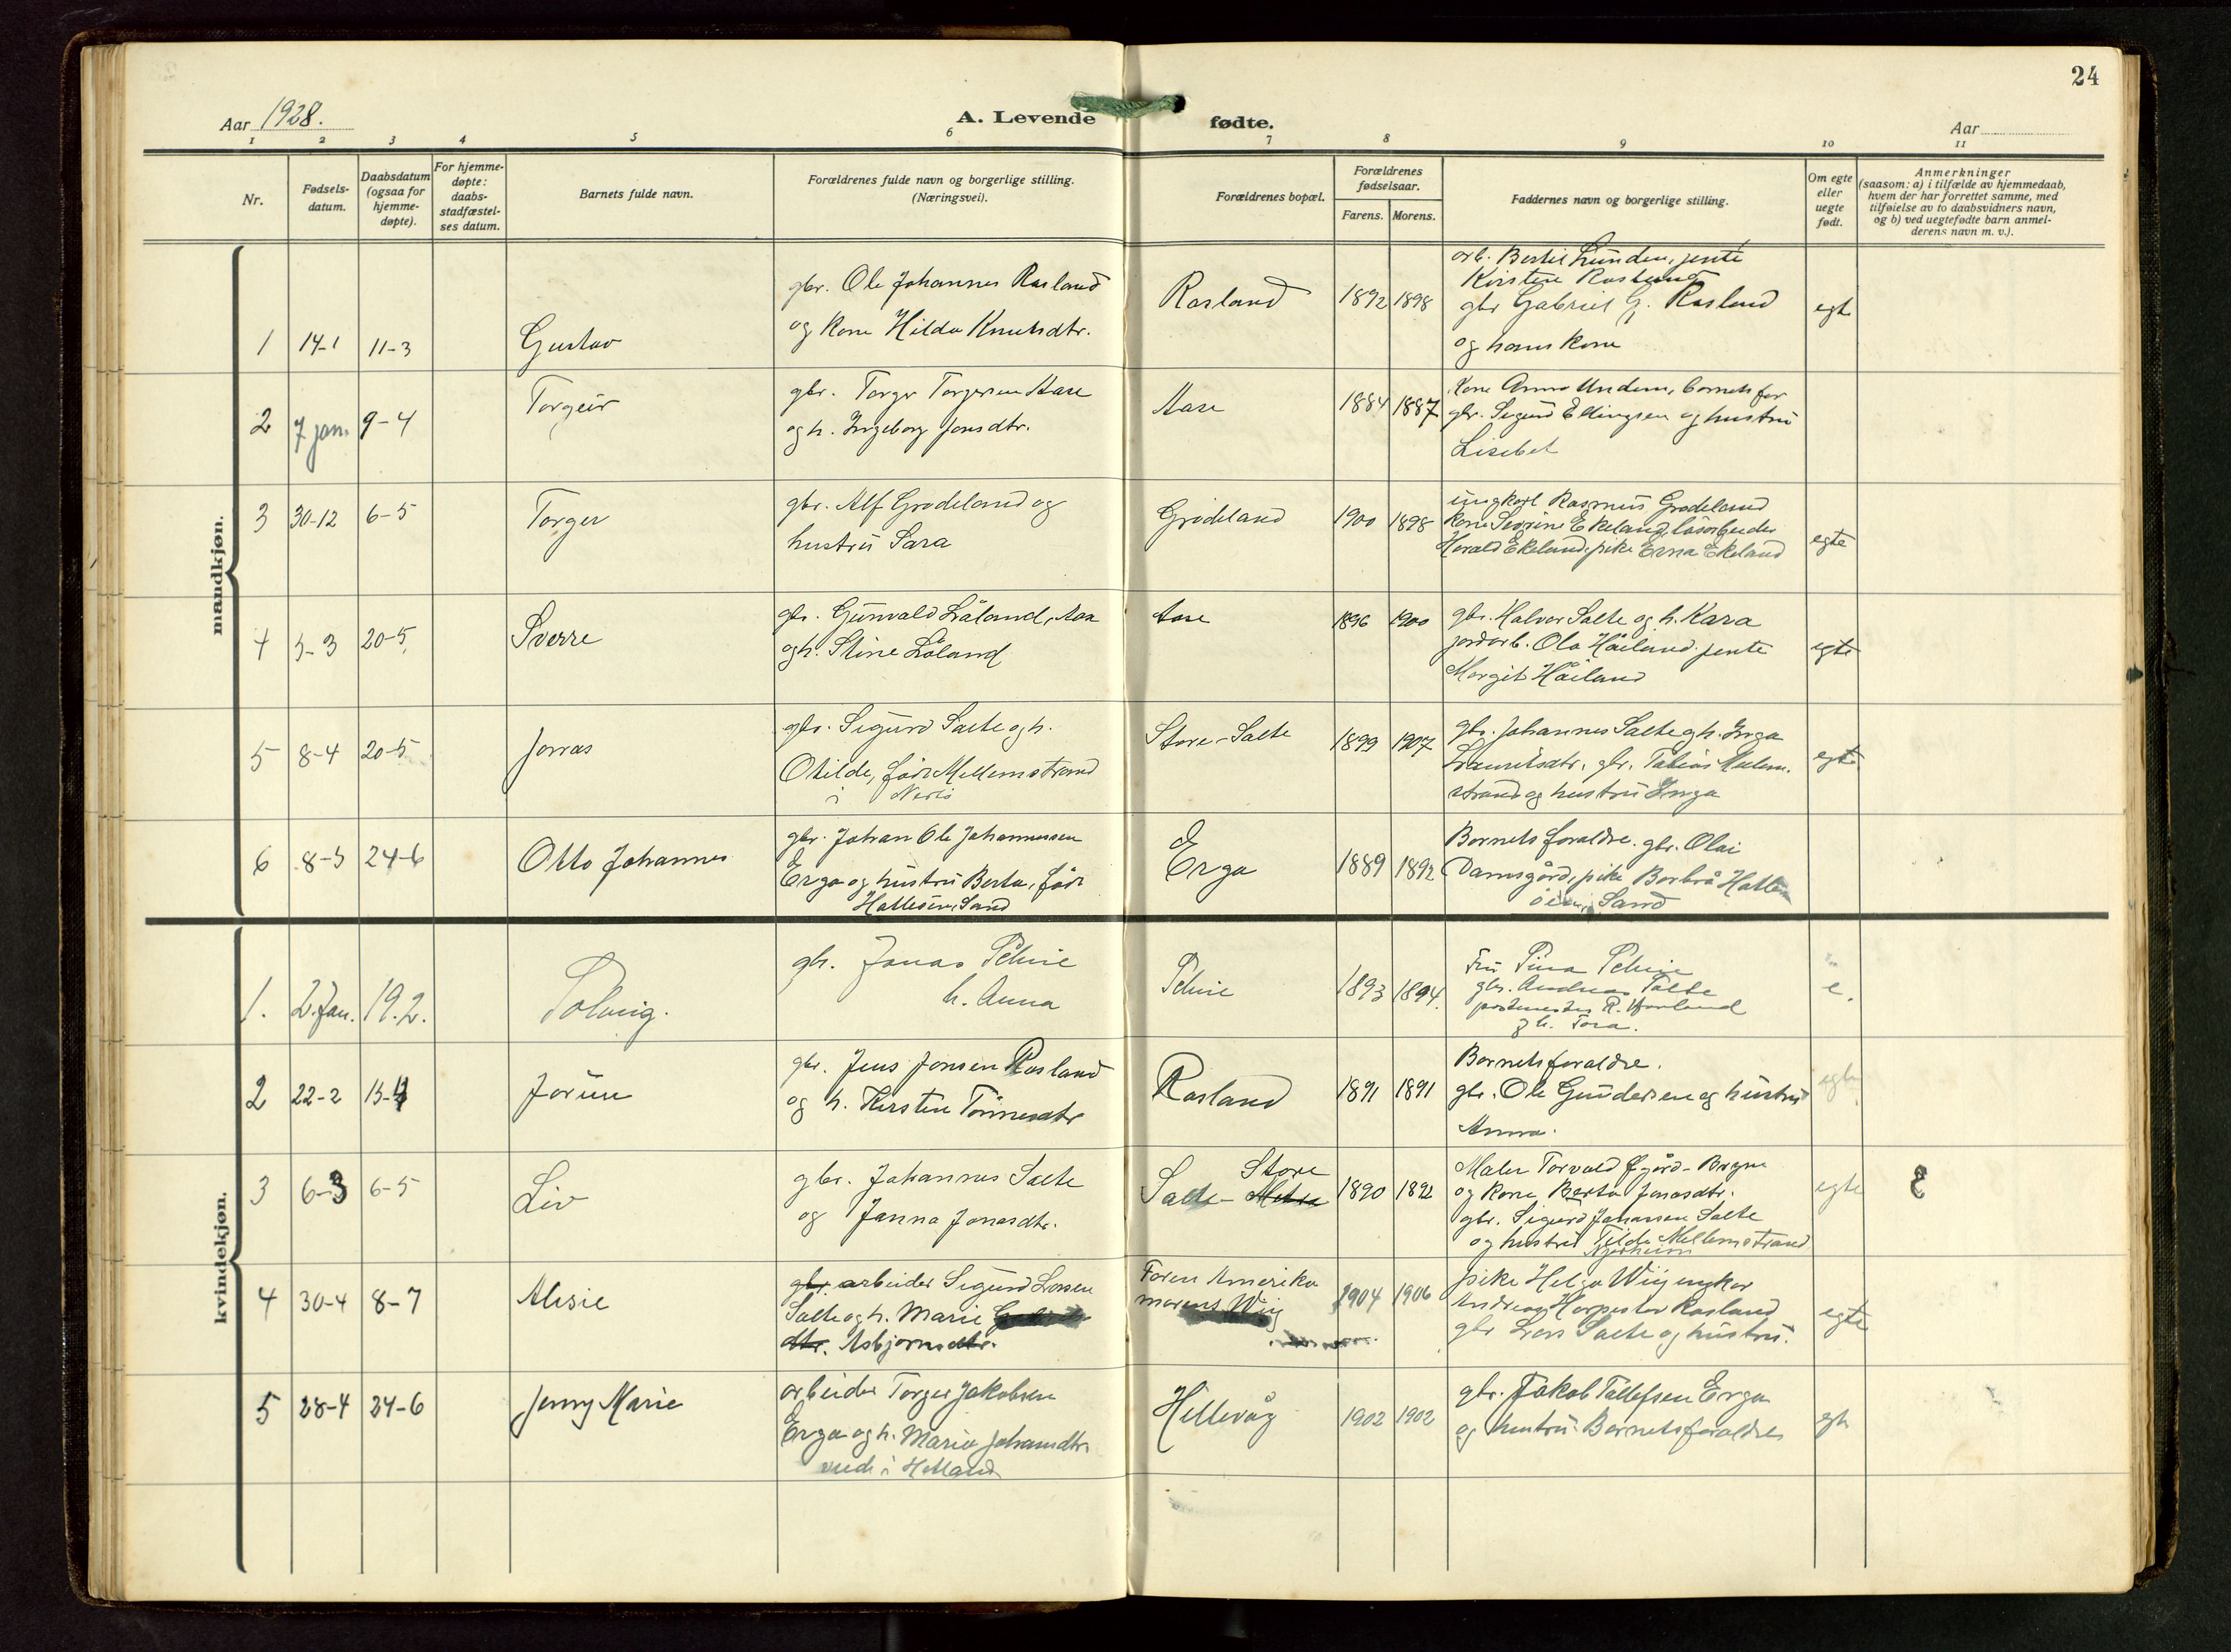 24
Aar 1928.
A. Levende fødte.
Aar
1 2 3 4 5 6 7 8 9 10 11
Nr.
Fødsels-
datum.
Daabsdatum
(ogsaa for
hjemme-
døpte).
For hjemme-
døpte:
daabs-
stadfæstel-
ses datum.
Barnets fulde navn.
Forældrenes fulde navn og borgerlige stilling.
(Næringsvei).
Forældrenes bopæl.
Forældrenes
fødselsaar.
Farens. Morens.
Faddernes navn og borgerlige stilling.
Om egte
eller
uegte
født.
Anmerkninger
(saasom: a) i tilfælde av hjemmedaab,
hvem der har forrettet samme, med
tilføielse av to daabsvidners navn,
og b) ved uegtefødte barn anmel-
derens navn m. v.).
mandkjøn.
1 14-1 11-3 Gustav
gbr. Ole Johannes Rosland
og kone Hilda Knutsdtr.
Rosland 1892 1898
arb. Bertil Lunden, jente
Kirsten Rosland
gbr Gabriel G. Rosland
og hans kone
egte
2 7 jan. 9-4 Torgeir
gbr. Torger Torgersen Aase
og h. Ingeborg Jonsdtr.
Aase 1884 1887
Kone Anna Undem, barnets far
gbr. Sigurd Ellingsen og hustru
Lisebet
3 30-12 6-5 Torger
gbr. Alf Grødeland og
hustru Sara
Grødeland 1900 1898
ungkarl Rasmus Grødeland
kone Severine Ekeland, løsarbeider
Harald Ekeland, pike Erna Ekeland
egte
4 5-3 20-5 Sverre
gbr. Gunvald Låland, Aase
og h. Stine Låland
Aase 1896 1900
gbr. Halvor Salte og h. Kara
jordarb. Ola Håland. jente
Margit Håland
egte
5 8-4 20-5 Jonas
gbr. Sigurd Salte og h.
Otilde, født Mellemstrand
i Nerls
Store-Salte 1899 1907
gbr. Johannes Salte og h. Inga
Lauritsdtr. gbr. Tobias Mellem-
strand og hustru Inga
egte
6 8-5 24-6 Otto Johannes
gbr. Johan Ole Johannessen
Erga og hustru Berta, født
Hatløen, Sand
Erga 1889 1892
Barnets foraldre. gbr. Olai
Damsgård, pike Borbrå Hatle-
øien, Sand
kvindekjøn.
1. 2. Jan. 19.2. Solveig.
gbr. Jonas Pelme
h. Anna
Pelme 1893 1894.
Fru Tina Pelme
gbr. Andreas Salte
postmester R. Haaland
og h. Tora.
e.
2 22-2 15-4 Jorunn
gbr. Jens Jonsen Rosland
og h. Kirsten Tønnesdtr
Rosland 1891 1891
Barnets foraldre.
gbr. Ole Gundersen og hustru
Anna.
egte
3 6-3 6-5 Liv
gbr. Johannes Salte
og Janna Jonasdtr.
Store
Salte- 1890 1892
Maler Torvald Øgård-Bryne
og kone Berta Jonasdtr.
gbr. Sigurd Johansen Salte
og hustru Tilda Mellemstrand
Njærheim
egte
4 30-4 8-7 Alisie
gbr. arbeider Sigurd Larsen
Salte og h. Marie
dtr. Asbjørnsdtr.
Faren Amerika
morens Wiig
1904 1906
pike Helga Wiig ungkar
Andreas Harpestav Rosland
gbr Lars Salte og hustru.
egte
5 28-4 24-6 Jenny Marie
arbeider Torger Jakobsen
Erga og h. Maria Johansdtr.
i Hetland
Hillevåg 1902 1902
gbr. Jakob Tollefsen Erga
og hustru. Barnets foraldre
egte